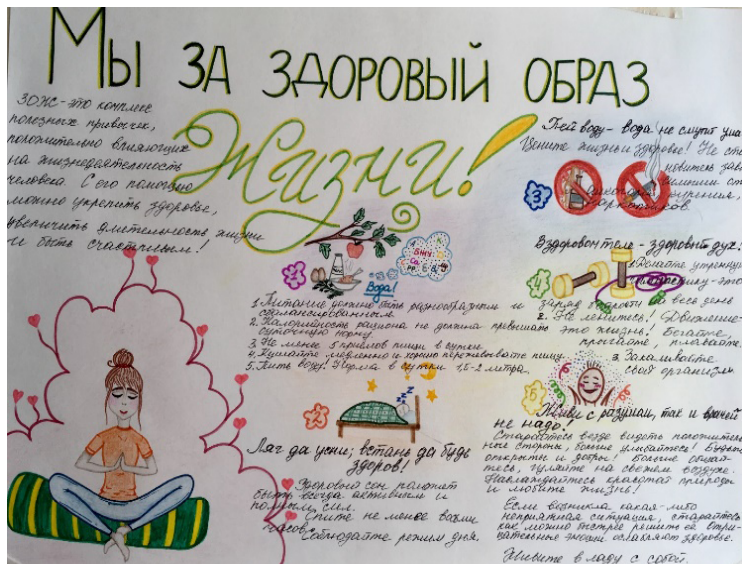 Мы за здоровый образ
Жизни!
ЗОЖ-это комплекс
полезных привычек,
положительно влияющих
на жизнедеятельность
человека. С его помощью
можно укрепить здоровье,
увеличить длительность жизни
и быть счастливым!
1
БЖУ
Са
РР, Е
Вода!
1. Питание должно быть разнообразным и
сбалансированным.
2. Калорийность рациона не должна превышать
суточную норму.
3. Не менее 5 приёмов пищи в сутки.
4. Кушайте медленно и хорошо пережёвывайте пищу.
5. Пить воду! Норма в сутки 1,5-2 литра.
2
Ляг да усни; встань да будь
здоров!
Здоровый сон помогает
быть всегда активным и
полным сил.
Спите не менее восьми
часов.
Соблюдайте режим дня.
Пей воду - вода не смутит ума
Цените жизнь и здоровье! Не ста
новитесь зав
симыми от
курения,
алкоголя
наркотиков.
3
В здоровом теле - здоровый дух!
4
1. Делайте утреннюю
гимнастику - это
заряд бодрости на весь день
2. Не ленитесь! Движение-
это жизнь! Бегайте,
прыгайте, плавайте.
3. Закаливайте
свой организм.
5
Живи с разумом, так и врачей
не надо!
Старайтесь везде видеть положитель
ные стороны, больше улыбайтесь! Будьте
открыты и добры! Больше общай
тесь, гуляйте на свежем воздухе.
Наслаждайтесь красотой природы
и любите жизнь!
Если возникла какая-либо
неприятная ситуация, старайтесь
как можно быстрее решить её. Отри-
цательные эмоции ослабляют здоровье.
Живите в ладу с собой.